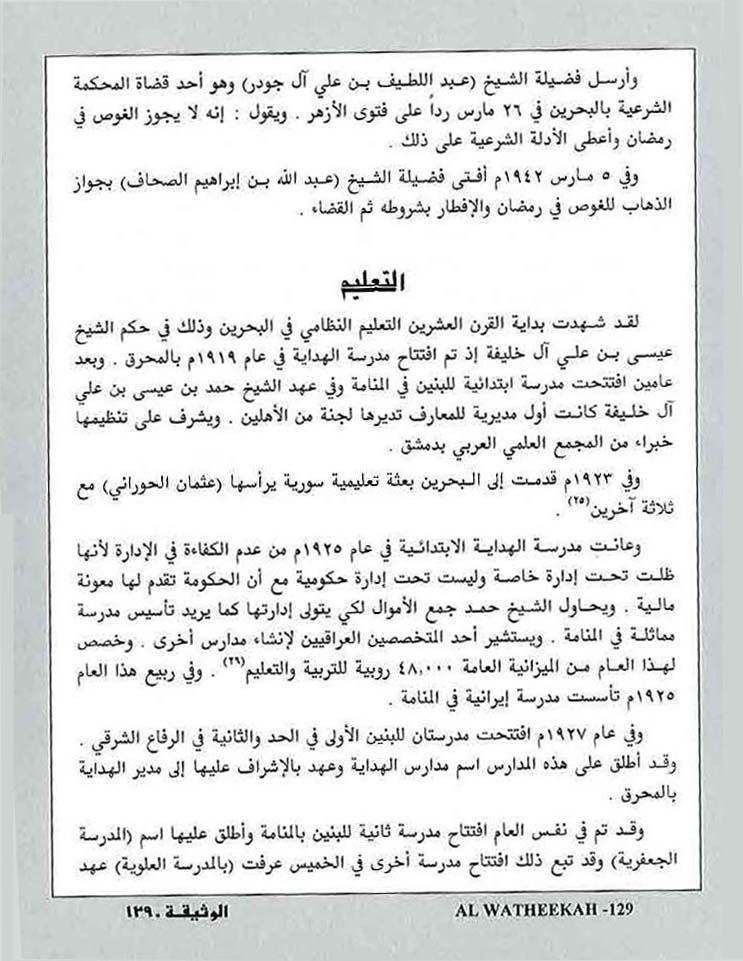 وأرسل فضيلة الشيخ (عبد اللطيف بن علي آل جودر) وهو أحد قضاة المحكمة
الشرعية بالبحرين في ٢٦ مارس رداً على فتوى الأزهر . ويقول : إنه لا يجوز الغوص في
رمضان وأعطى الأدلة الشرعية على ذلك .
وفي ٥ مارس ١٩٤٢م أفتى فضيلة الشيخ (عبد الله بن إبراهيم الصحاف) بجواز
الذهاب للغوص في رمضان والإفطار بشروطه ثم القضاء .
التعليم
لقد شهدت بداية القرن العشرين التعليم النظامي في البحرين وذلك في حكم الشيخ
عيسى بن علي آل خليفة إذ تم افتتاح مدرسة الهداية في عام ١٩١٩م بالمحرق . وبعد
عامين افتتحت مدرسة ابتدائية للبنين في المنامة وفي عهد الشيخ حمد بن عيسى بن علي
آل خليفة كانت أول مديرية للمعارف تديرها لجنة من الأهلين . ويشرف على تنظيمها
خبراء من المجمع العلمي العربي بدمشق .
وفي ١٩٢٣م قدمت إلى البحرين بعثة تعليمية سورية يرأسها (عثمان الحوراني) مع
ثلاثة آخرين(٢٥) .
وعانت مدرسة الهداية الابتدائية في عام ١٩٢٥م من عدم الكفاءة في الإدارة لأنها
ظلت تحت إدارة خاصة وليست تحت إدارة حكومية مع أن الحكومة تقدم لها معونة
مالية . ويحاول الشيخ حمد جمع الأموال لكي يتولى إدارتها كما يريد تأسيس مدرسة
مماثلة في المنامة . ويستشير أحد المتخصصين العراقيين لإنشاء مدارس أخرى . وخصص
لهذا العام من الميزانية العامة ٤٨,٠٠٠ روبية للتربية والتعليم(٢٦) . وفي ربيع هذا العام
١٩٢٥م تأسست مدرسة إيرانية في المنامة .
وفي عام ١٩٢٧م افتتحت مدرستان للبنين الأولى في الحد والثانية في الرفاع الشرقي .
وقد أطلق على هذه المدارس اسم مدارس الهداية وعهد بالإشراف عليها إلى مدير الهداية
بالمحرق .
وقد تم في نفس العام افتتاح مدرسة ثانية للبنين بالمنامة وأطلق عليها اسم (المدرسة
الجعفرية) وقد تبع ذلك افتتاح مدرسة أخرى في الخميس عرفت (بالمدرسة العلوية) عهد
الوثيقة ـ ١٣٩ AL WATHEEKAH -129